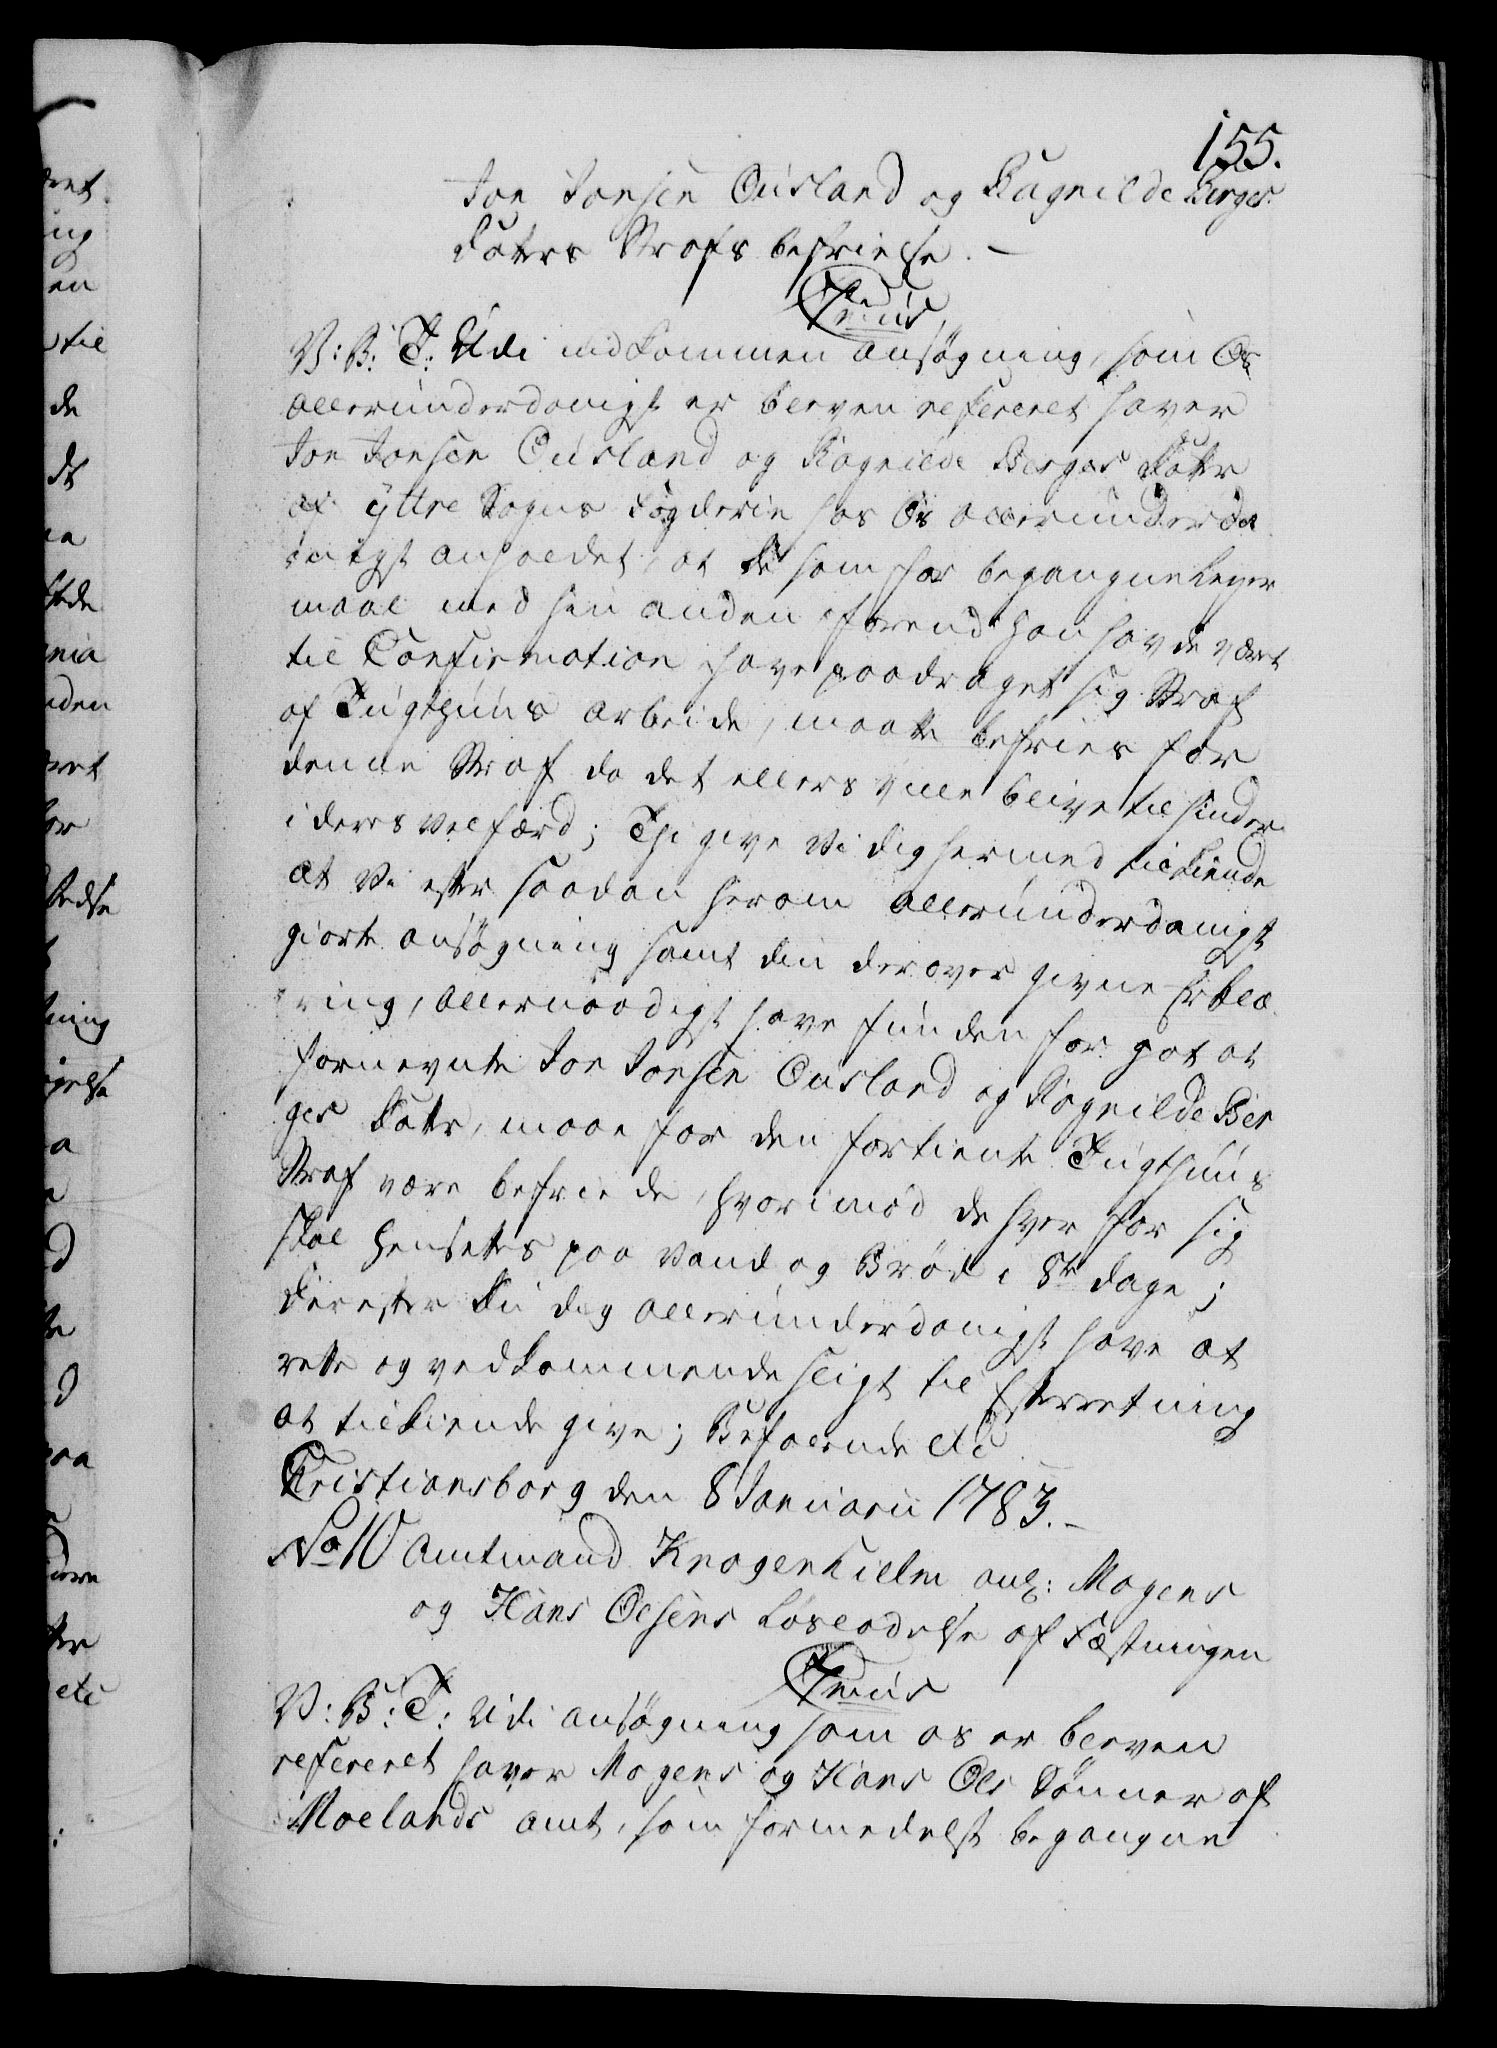 155.
Jon Jonsen Ousland og Ragnilde Berges
Datters Strafs befrielse. –
Fr:mus
V: B: T: Udi indkommen ansøgning, som Os
allerunderdanigst er bleven refereret haver
Jon Jonsen Ousland og Ragnilde Berges Datter
af Yttre Sogns Fogderie hos Os allerunderda
nigst anholdet, at de som for begangne Leyer
maal med hin anden forend han havde været
til Confirmation have paadraget sig Straf
af Tugthuus arbeide, maatte befries for
denne Straf da det ellers ville blive til hinder
i deres velfærd; Thi give Vi dig hermed tilkiende
at Vi efter saadan herom allerunderdanigst
giorte ansøgning samt din derover givne Erklæ
ring, allernaadigst have funden for got at
fornevnte Jon Jonsen Ousland og Ragnilde Ber
ges Datter, maae for den fortiente Tugthuus
Straf være befriede, hvorimod de hver for sig
skal hensettes paa Vand og Brød i 8te dage;
Derefter Du dig allerunderdanigst have at
rette og vedkommende sligt til Efterretning
at tilkiende give; Befalende etc
Christiansborg den 8 Januarii 1783. –
No 10 Amtmand Knagenhielm anl: Mogens
og Hans Olsens Løsladelse af Fæstningen
Fr:mus
V: B: T: Udi ansøgning som os er bleven
refereret haver Mogens og Hans Ols Sønner af
Moelands amt, som formedelst begangne